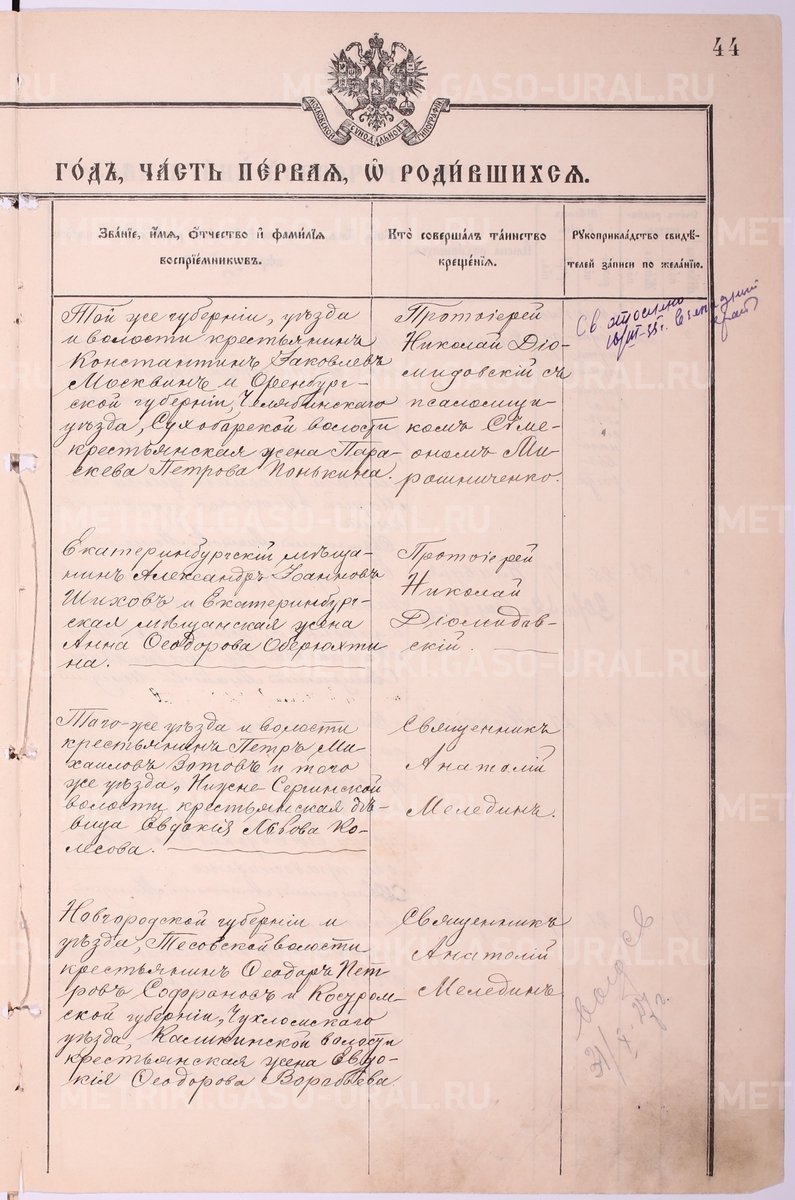 44
МОСКОВСКОЙ СУНОДАЛЬНОЙ ТИПОГРАФІИ
ГО́ДЪ, ЧА́СТЬ ПЕ́РВАЯ, Ѡ҆ РОДИ́ВШИХСЯ.
Зва́нїе, и҆́мя, ѻ҆́тчество и҆ фами́лїя
воспрїе́мникѡвъ.
Кто̀ соверша́лъ та́инство
креще́нїя.
Рꙋкоприкла́дство свидѣ́-
телей за́писи по жела́нїю.
Той же губерніи, уѣзда
и волости крестьянинъ
Константинъ Іаковлевъ
Москвинъ и Оренбург-
ской губерніи, Челябинскаго
уѣзда, Сухоборской волости
крестьянская жена Пара-
скева Петрова Понькина.
Протоіерей
Николай Діо-
мидовскій съ
псаломщи-
комъ Сѵме-
ономъ Ми-
рошниченко.
Св
Екатеринбургскій мѣща-
нинъ Александръ Іоанновъ
Шиховъ и Екатеринбург-
ская мѣщанская жена
Анна Ѳеодорова Оберюхти
на.
Протоіерей
Николай
Діомидов-
скій.
Того-же уѣзда и волости
крестьянинъ Петръ Ми-
хаиловъ Зотовъ и того
же уѣзда, Нижне-Сергинской
волости крестьянская дѣ-
вица Евдокія Львова Ко-
лесова.
Священникъ
Анатолій
Мелединъ.
Новгородской губерніи и
уѣзда, Тесовской волости
крестьянинъ Ѳеодоръ Пет-
ровъ Софроновъ и Костром-
ской губерніи, Чухломскаго
уѣзда, Каликинской волости
крестьянская жена Евдо-
кія Ѳеодорова Воробьева.
Священникъ
Анатолій
Мелединъ
METRIKI.GASO-URAL.RU